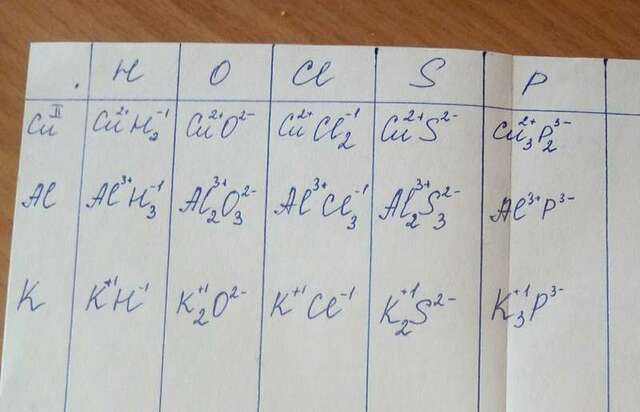 H O Cl S P
Cu^II Cu^2+H_2^-1 Cu^2+O^2- Cu^2+Cl_2^-1 Cu^2+S^2- Cu_3^2+P_2^3-
Al Al^3+H_3^-1 Al_2^3+O_3^2- Al^3+Cl_3^-1 Al_2^3+S_3^2- Al^3+P^3-
K K^+1H^-1 K_2^+1O^2- K^+1Cl^-1 K_2^+1S^2- K_3^+1P^3-